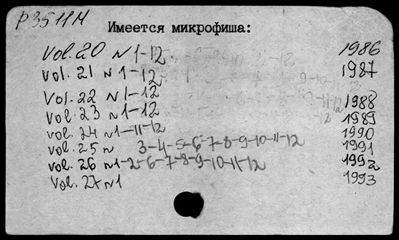 P3511M
Имеется микрофиша:
Vol. 20 N 1-12 1986
Vol. 21 N 1-12 1987
Vol. 22 N 1-12 1988
Vol. 23 N 1-12 1989
Vol. 24 N1-11-12 1990
Vol. 25 N 3-4-5-6-7-8-9-10-11-12 1991
Vol. 26 N1-2-6-7-8-9-10-11-12 1992
Vol. 27 N1 1993